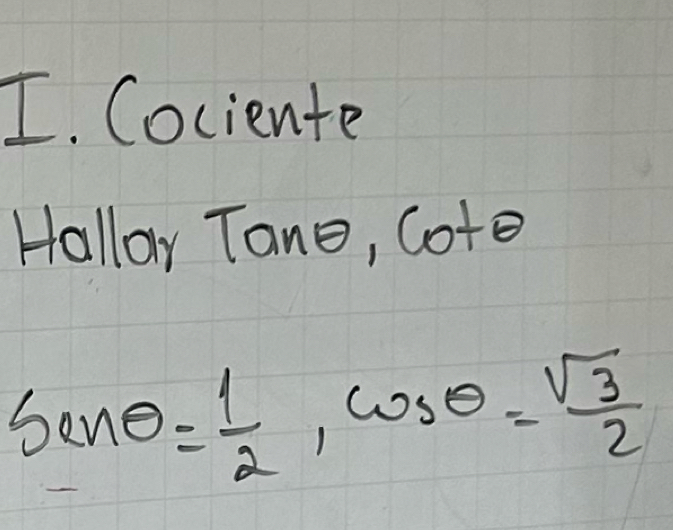 I. Cociente
Hallar Tanθ, Cotθ
Senθ = 1/2, cosθ = √3/2